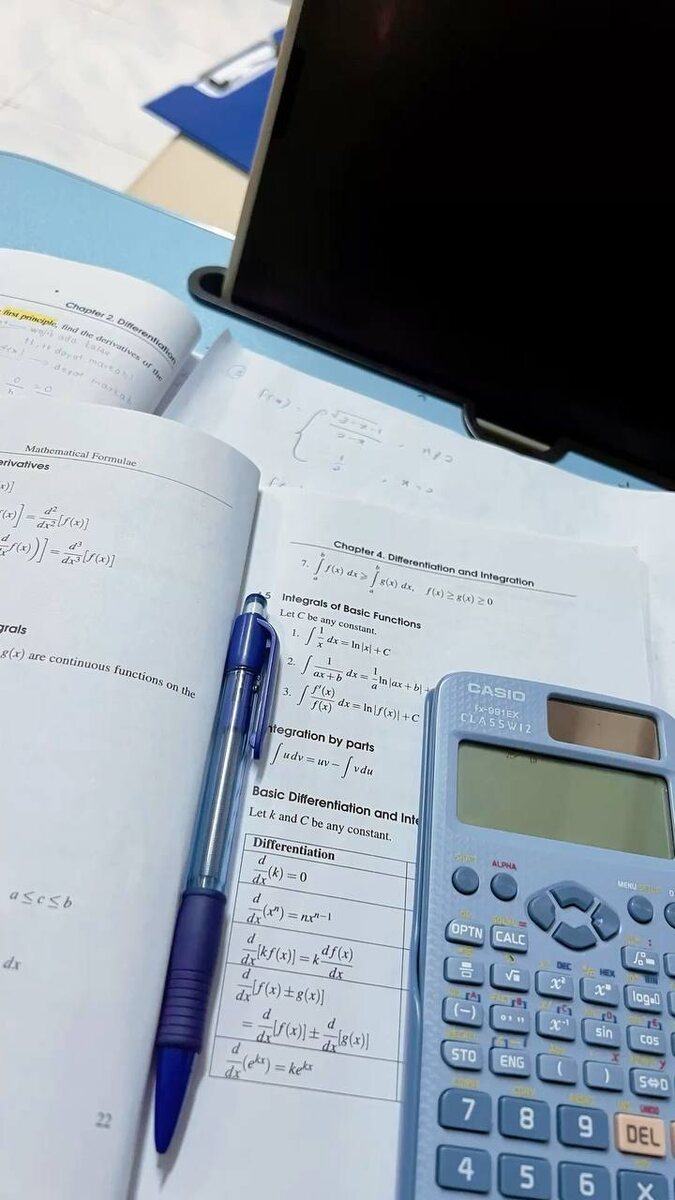 Chapter 2. Differentiation
first principle, find the derivatives of the
Mathematical Formulae
erivatives
x)]
f(x)] = d²/dx² [f(x)]
d/dx f(x))] = d³/dx³ [f(x)]
grals
g(x) are continuous functions on the
a ≤ c ≤ b
dx
22
f(x) =
Chapter 4. Differentiation and Integration
7. ∫ₐᵇ f(x) dx ≥ ∫ₐᵇ g(x) dx, f(x) ≥ g(x) ≥ 0
5 Integrals of Basic Functions
Let C be any constant.
1. ∫ 1/x dx = ln|x| + C
2. ∫ 1/(ax+b) dx = 1/a ln|ax+b| +
3. ∫ f'(x)/f(x) dx = ln|f(x)| + C
ntegration by parts
∫ u dv = uv − ∫ v du
Basic Differentiation and Inte
Let k and C be any constant.
Differentiation
d/dx (k) = 0
d/dx (xⁿ) = nxⁿ⁻¹
d/dx [kf(x)] = k df(x)/dx
d/dx [f(x) ± g(x)]
= d/dx [f(x)] ± d/dx [g(x)]
d/dx (eᵏˣ) = keᵏˣ
CASIO
fx-991EX
CLASSWIZ
SHIFT ALPHA MENU SETUP
OPTN CALC
x² xⁿ log
(−) x⁻¹ sin cos
STO ENG ( ) S⇔D
7 8 9 DEL
4 5 6 ×